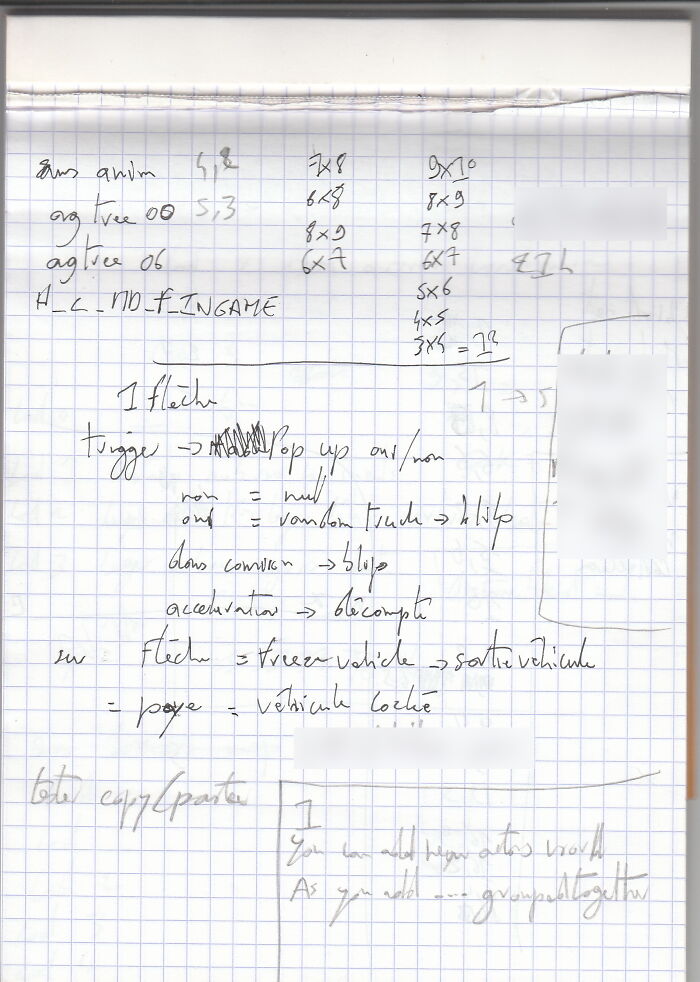 anim
7x8
9x10
ag tree 00 5,3
6x8
8x9
8x9
7x8
ag tree 06
6x7
6x7
5x6
INGAME
4x5
3x4 = 12
1 flèche
1 → 5
trigger → Pop up oui/non
non = null
oui = random truck → blip
dans camion → blip
acceleration → décompte
sur flèche = freeze vehicle → sortie véhicule
= paye = véhicule
tester copy/paste
1
You can add actors
As you add .... grouped together